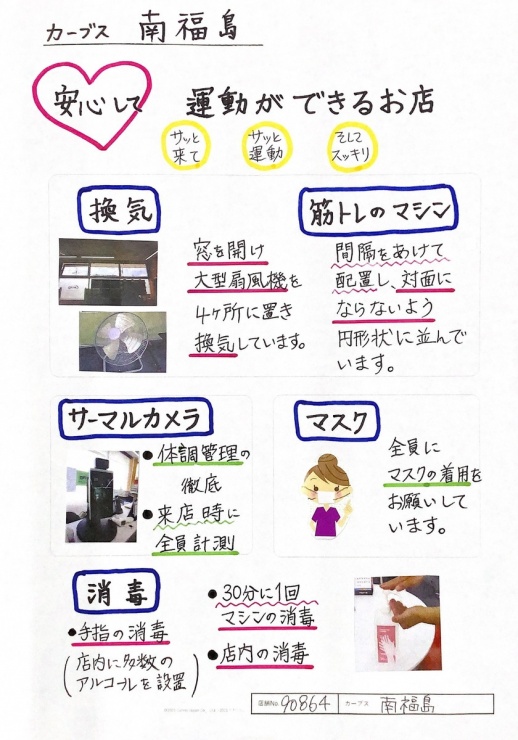 カーブス 南福島
安心して 運動ができるお店
サッと
来て
サッと
運動
そして
スッキリ
換気
窓を開け
大型扇風機を
4ヶ所に置き
換気しています。
筋トレのマシン
間隔をあけて
配置し、対面に
ならないよう
円形状に並んで
います。
サーマルカメラ
• 体調管理の
徹底
• 来店時に
全員計測
マスク
全員に
マスクの着用を
お願いして
います。
消毒
• 手指の消毒
(店内に多数の
アルコールを設置)
• 30分に1回
マシンの消毒
• 店内の消毒
店舗No. 90864 カーブス 南福島